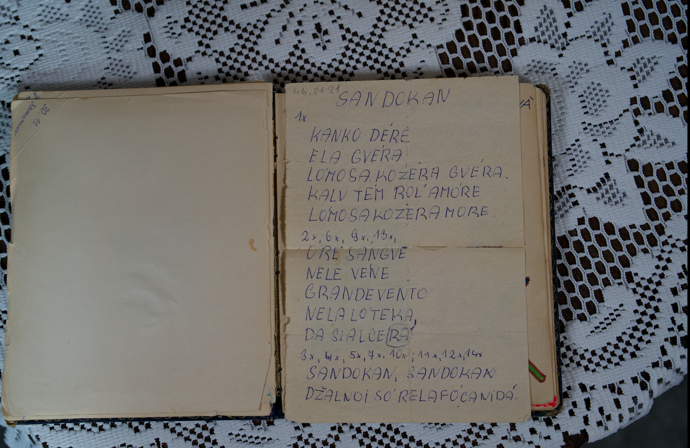 SANDOKAN
1x
KANKO DÉRE
ELA GVÉRA
LOMOSA KOZÉRA GVÉRA.
KALV TEM ROL'AMÓRE
LOMOSA KOZERA MORE
2x, 6x, 9x, 13x,
ÓRE SANGVE
NELE VENE
GRANDE VENTO
NELA LOTEKA,
DA SIALCE RA
3x, 4x, 5x, 7x, 10x, 11x, 12x, 14x
SANDOKAN, SANDOKAN
DŽALNOI SO RELA FÓCANIDÁ.